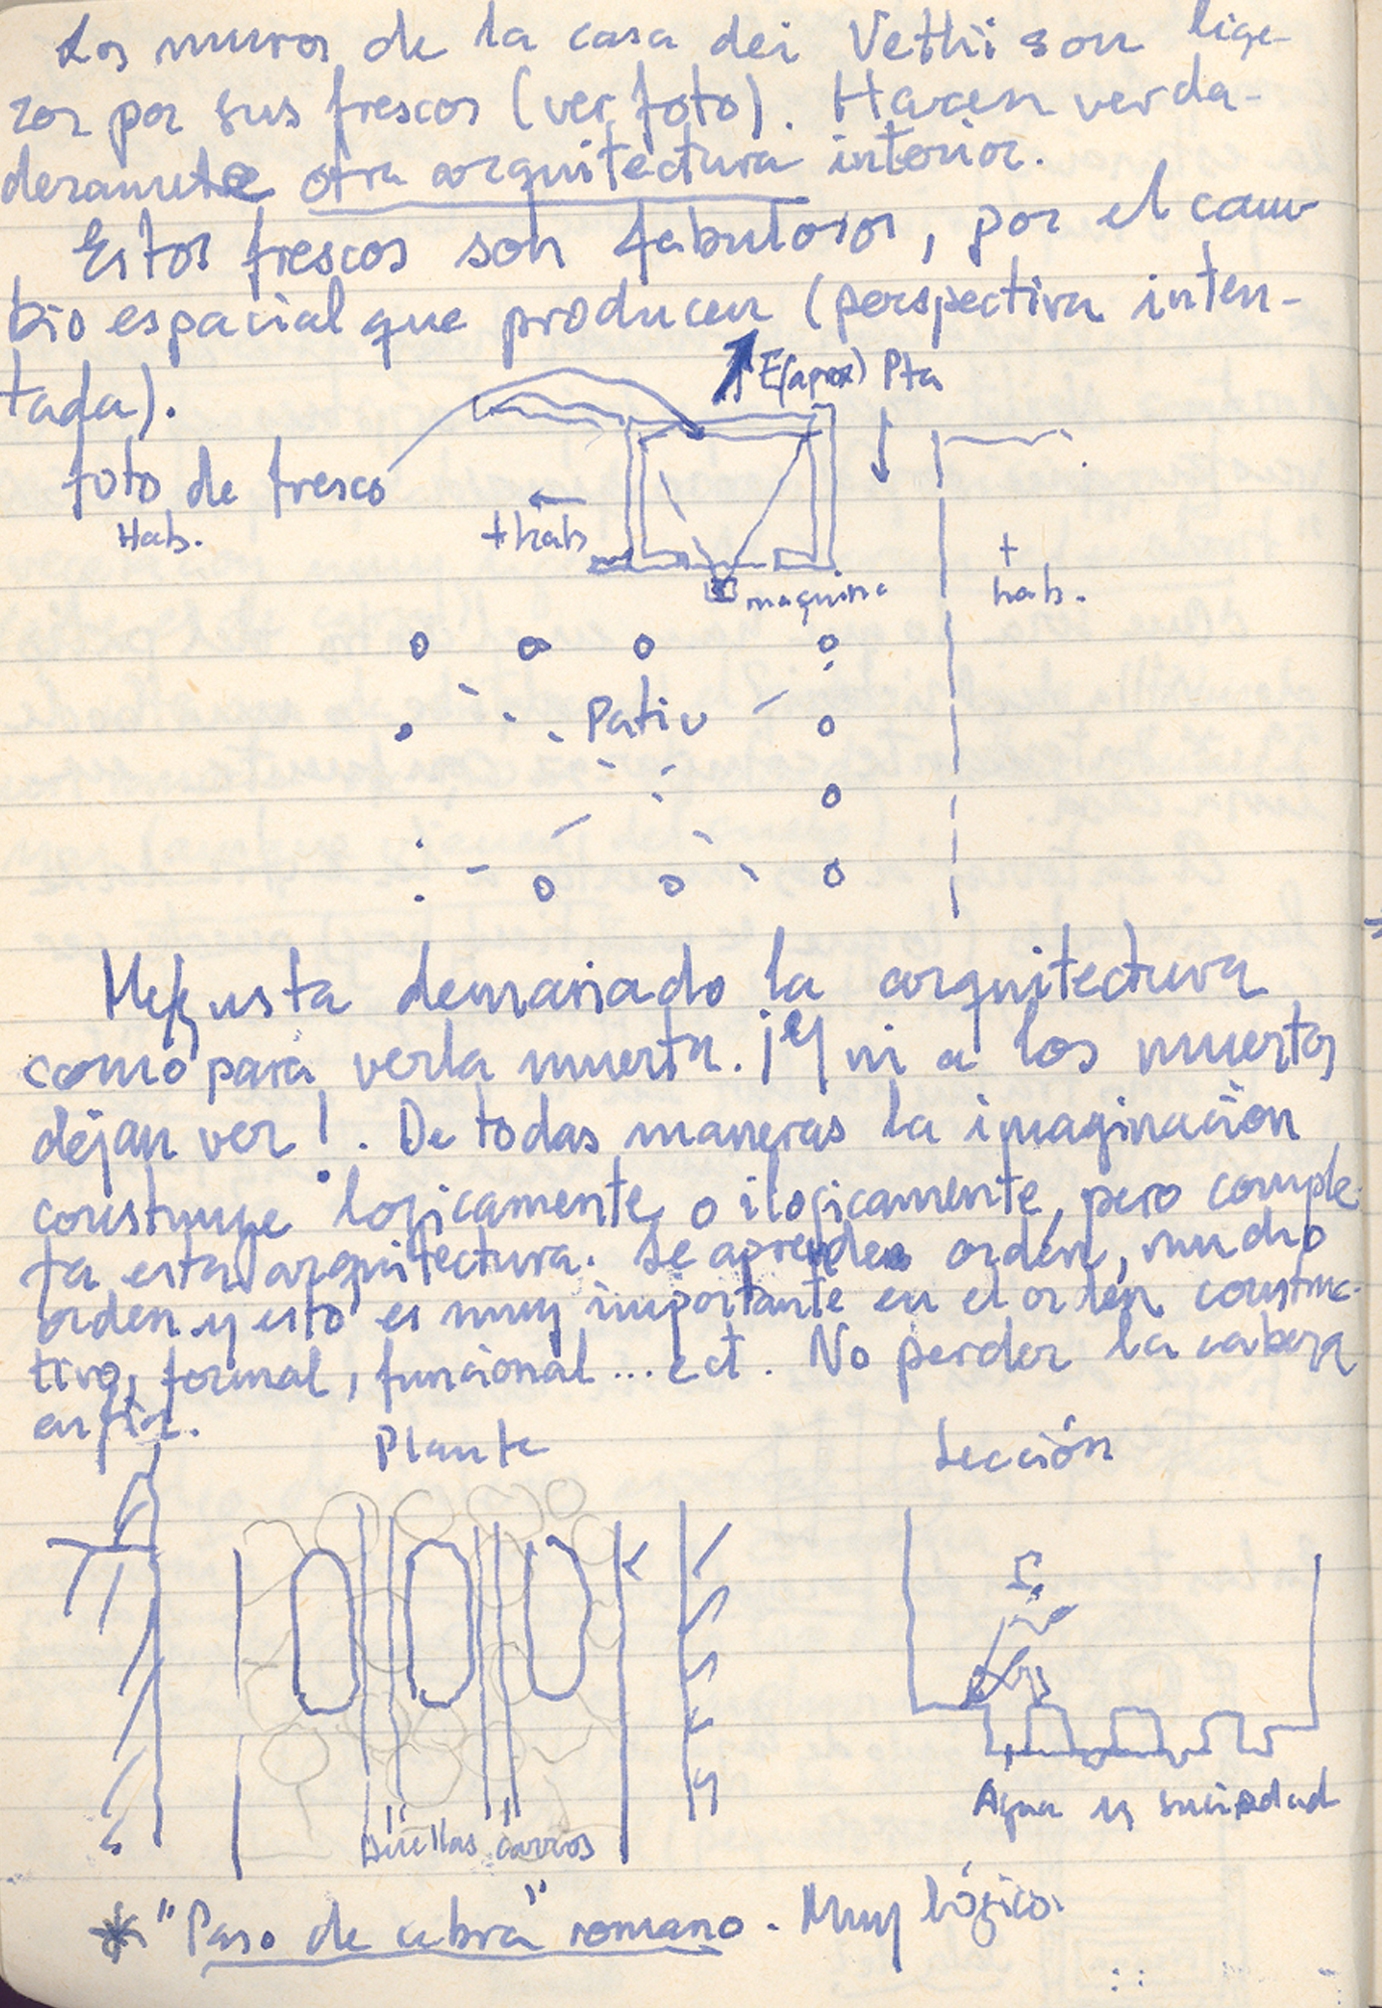 Los muros de la casa dei Vethi son lige-
ros por sus frescos (ver foto). Hacen verda-
deramente otra arquitectura interior.
Estos frescos son fabulosos, por el cam-
bio espacial que producen (perspectiva inten-
tada).
E(aprox) Pta
foto de fresco
Hab.
+ hab
+
hab.
maquina
Patio
Me gusta demasiado la arquitectura
como para verla muerta. ¡Y ni a los muertos
dejan ver!. De todas maneras la imaginación
construye logicamente o ilogicamente, pero comple-
ta esta arquitectura. Se aprende orden, mucho
orden y esto es muy importante en el orden construc-
tivo, formal, funcional ... ect. No perder la cabeza
en fin.
Planta
Sección
Agua y suciedad
"huellas carros"
* "Paso de cebra" romano. Muy lógico.